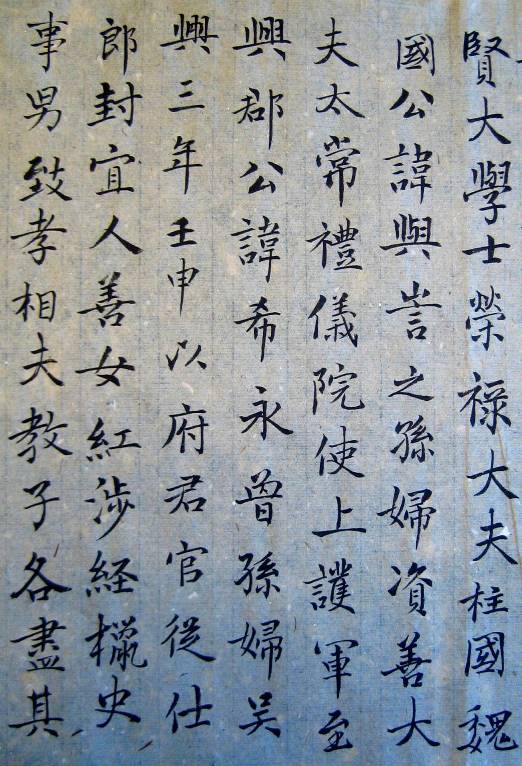 賢大學士榮祿大夫柱國魏
國公諱與訔之孫婦資善大
夫太常禮儀院使上護軍至
興郡公諱希永曽孫婦吴
興三年壬申以府君官從仕
郎封宜人善女紅涉経櫷史
事男致孝相夫教子各盡其